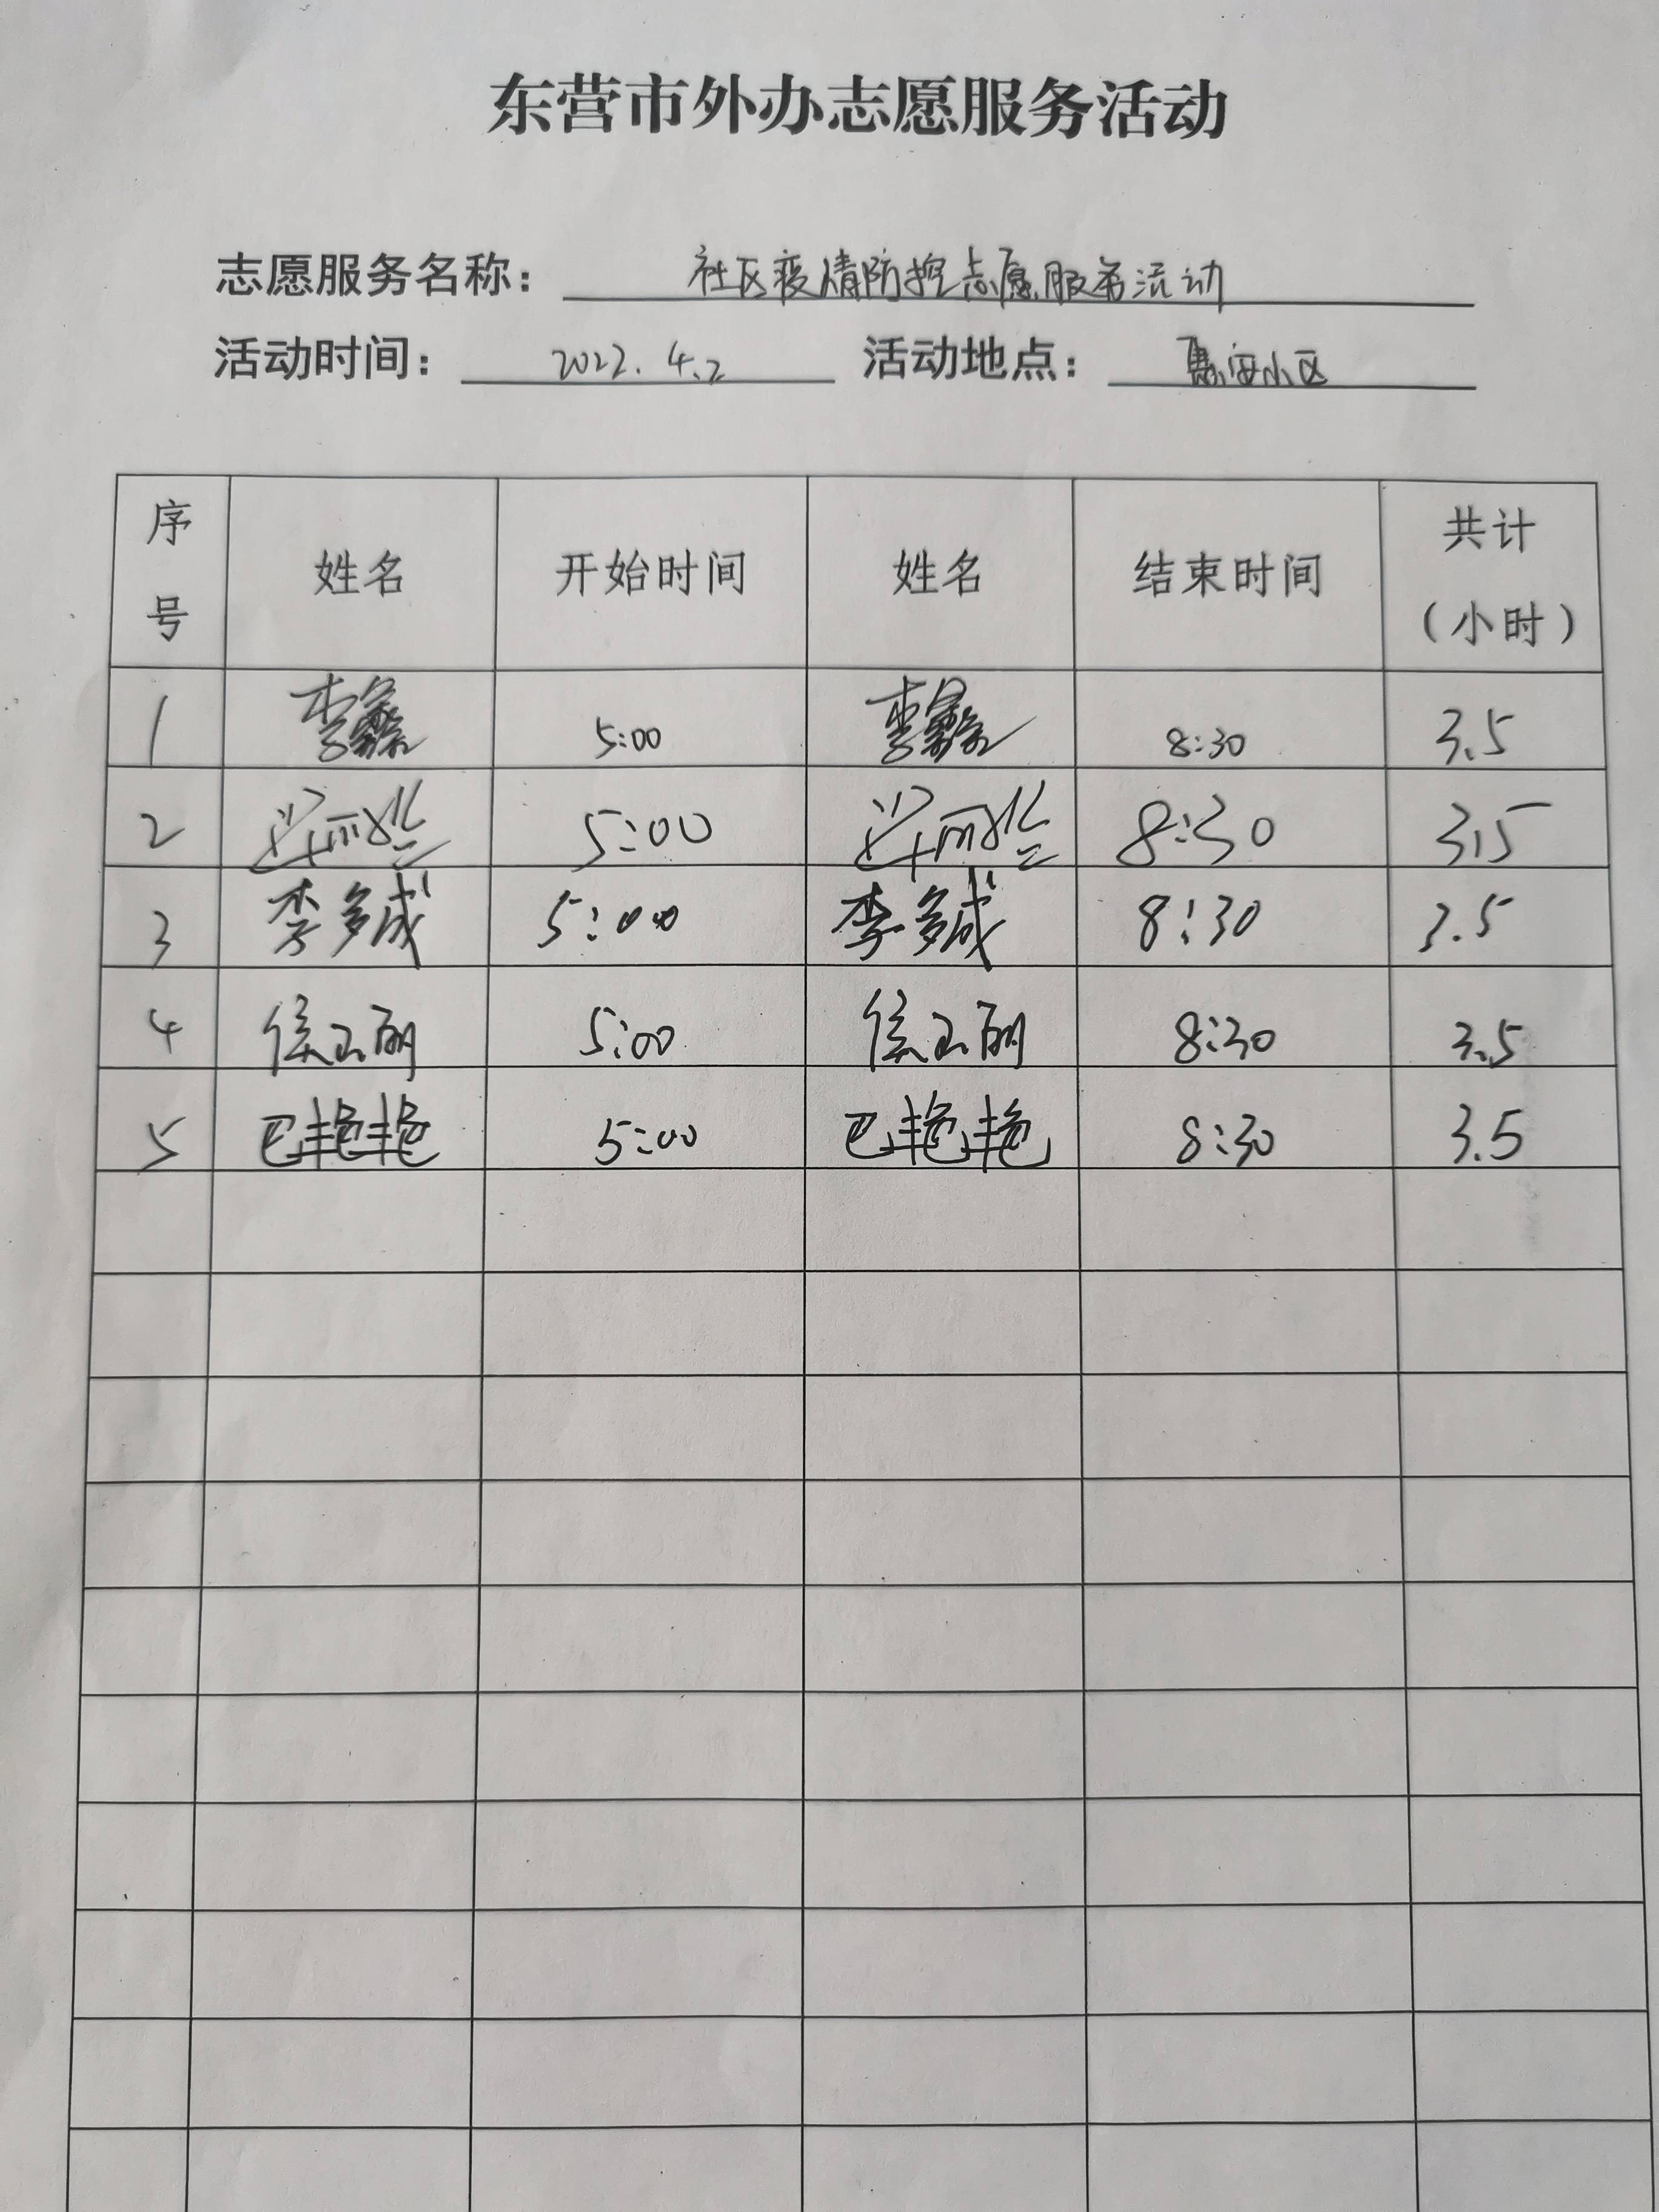 东营市外办志愿服务活动
志愿服务名称：社区疫情防控志愿服务活动
活动时间：2022.4.2 活动地点：惠安小区
序号 姓名 开始时间 姓名 结束时间 共计（小时）
1 李鑫 5:00 李鑫 8:30 3.5
2 5:00 8:30 3.5
3 李多斌 5:00 李多斌 8:30 3.5
4 侯玉丽 5:00 侯玉丽 8:30 3.5
5 巴艳艳 5:00 巴艳艳 8:30 3.5